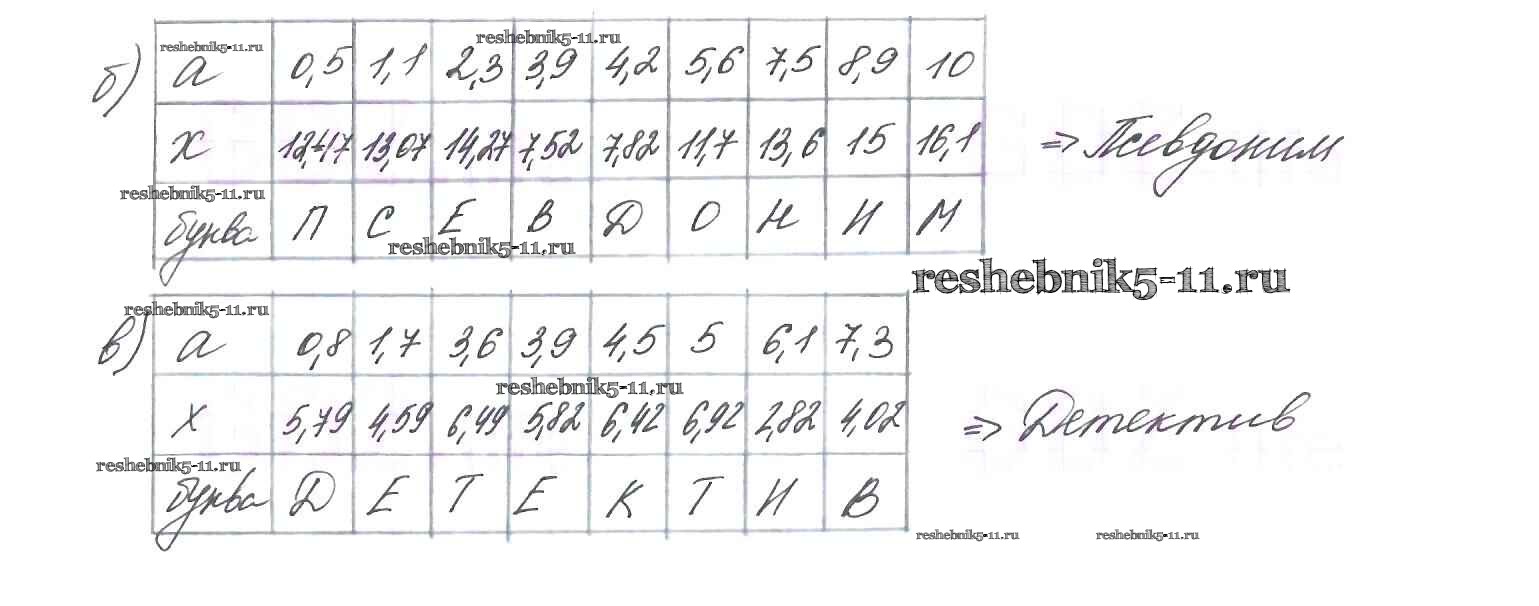 б) reshebnik5-11.ru a 0,5 1,1 reshebnik5-11.ru 2,3 3,9 4,2 5,6 7,5 8,9 10
x 12,47 13,07 14,27 7,52 7,82 11,7 13,6 15 16,1 => Псевдоним
reshebnik5-11.ru
буква П С Е В Д О Н И М
reshebnik5-11.ru
reshebnik5-11.ru
reshebnik5-11.ru
в) a 0,8 1,7 3,6 3,9 4,5 5 6,1 7,3
reshebnik5-11.ru
x 5,79 4,59 6,49 5,82 6,42 6,92 2,82 4,02 => Детектив
reshebnik5-11.ru
буква Д Е Т Е К Т И В
reshebnik5-11.ru reshebnik5-11.ru